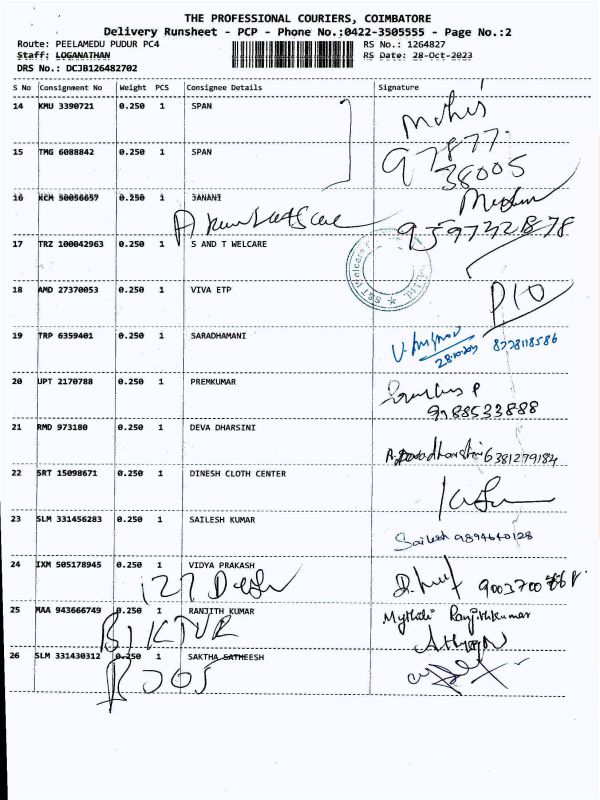 THE PROFESSIONAL COURIERS, COIMBATORE
Delivery Runsheet - PCP - Phone No.:0422-3505555 - Page No.:2
Route: PEELAMEDU PUDUR PC4
RS No.: 1264827
Staff: LOGANATHAN
RS Date: 28-Oct-2023
DRS No.: DCJB126482702
S No Consignment No Weight PCS Consignee Details Signature
14 KMU 3390721 0.250 1 SPAN
97877
15 TMG 6088842 0.250 1 SPAN
38005
16 KCM 50056657 0.250 1 JANANI
17 TRZ 100042963 0.250 1 S AND T WELCARE
S&T Welcare
18 AMD 27370053 0.250 1 VIVA ETP
P10
19 TRP 6359401 0.250 1 SARADHAMANI
8778118586
20 UPT 2170788 0.250 1 PREMKUMAR
9188533888
21 RMD 973180 0.250 1 DEVA DHARSINI
6381279184
22 SRT 15098671 0.250 1 DINESH CLOTH CENTER
23 SLM 331456283 0.250 1 SAILESH KUMAR
Sailesh 9894640128
24 IXM 505178945 0.250 1 VIDYA PRAKASH
25 MAA 943666749 0.250 1 RANJITH KUMAR
Mythili Ranjithkumar
26 SLM 331430312 0.250 1 SAKTHA SATHEESH